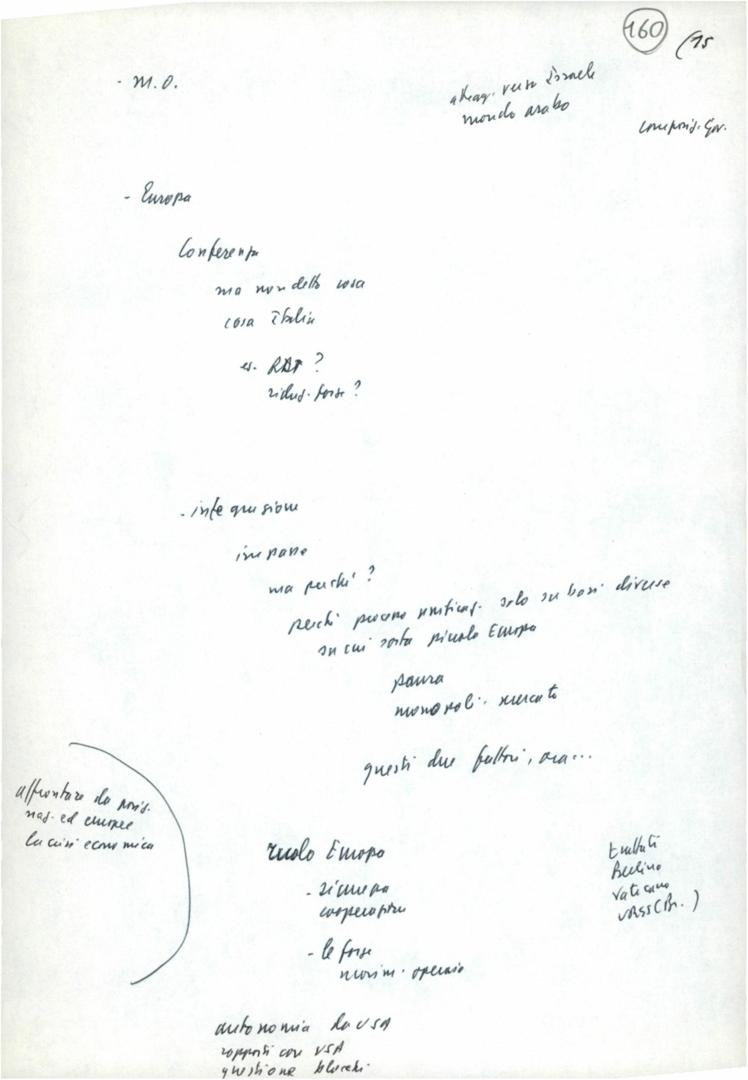 160
(15
- M.O.
atteg. verso Israele
mondo arabo
compos. Gov.
- Europa
Conferenza
ma non detto cosa
cosa Italia
es. RDT ?
riduz. forze ?
- integrazione
impasse
ma perché ?
perché processo unificaz. solo su basi diverse
su cui sorta piccola Europa
paura
monopoli - mercato
questi due fattori, ora...
affrontare da posiz.
naz. ed europee
la crisi economica
ruolo Europa
- sicurezza
cooperazione
- le forze
movim. operaio
Trattati
Berlino
Vaticano
URSS (Br.)
autonomia da USA
rapporti con USA
questione blocchi